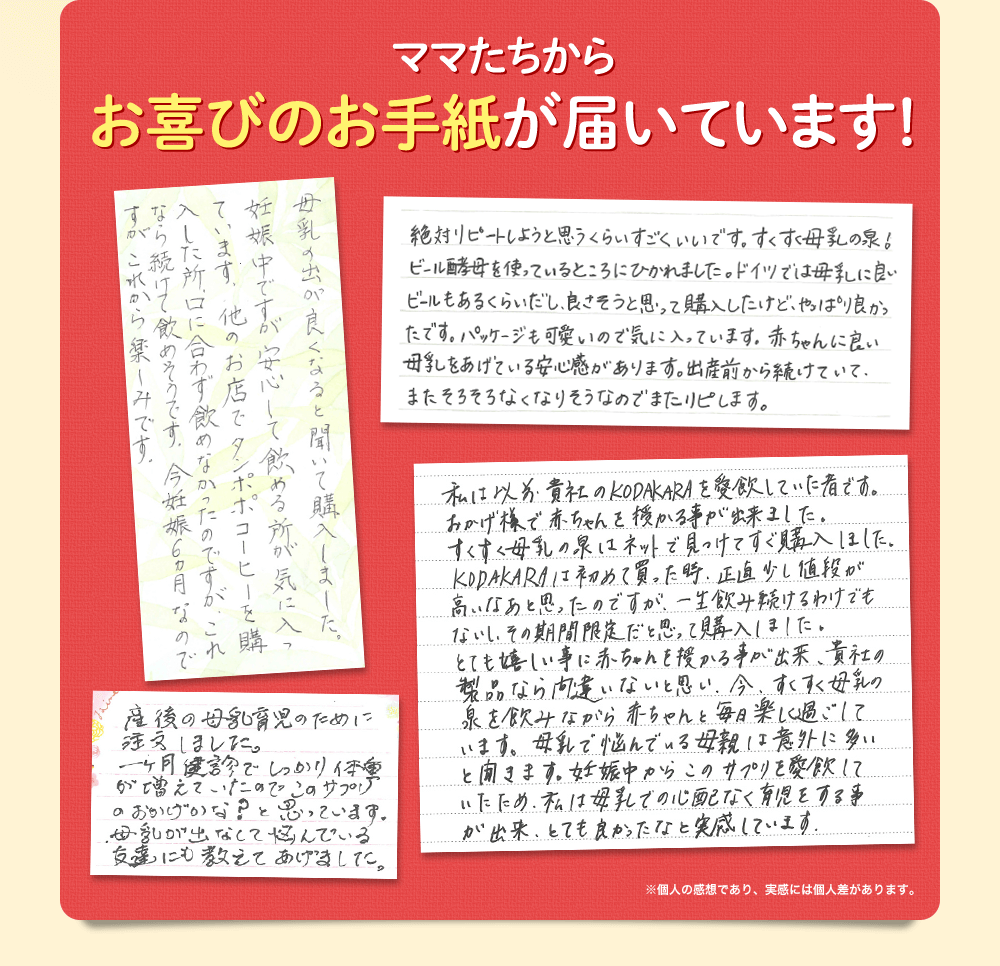 ママたちから
お喜びのお手紙が届いています!
母乳の出が良くなると聞いて購入しました。
妊娠中ですが安心して飲める所が気に入っ
ています。他のお店でタンポポコーヒーを購
入した所、口に合わず飲めなかったのですが、これ
なら続けて飲めそうです。今妊娠6ヵ月なので
すが、これから楽しみです。
絶対リピートしようと思うくらいすごくいいです。すくすく母乳の泉!
ビール酵母を使っているところにひかれました。ドイツでは母乳に良い
ビールもあるくらいだし、良さそうと思って購入したけど、やっぱり良かっ
たです。パッケージも可愛いので気に入っています。赤ちゃんに良い
母乳をあげている安心感があります。出産前から続けていて、
またそろそろなくなりそうなのでまたリピします。
私は以前、貴社のKODAKARAを愛飲していた者です。
おかげ様で赤ちゃんを授かる事が出来ました。
すくすく母乳の泉はネットで見つけてすぐ購入しました。
KODAKARAは初めて買った時、正直少し値段が
高いなあと思ったのですが、一生飲み続けるわけでも
ないし、その期間限定だと思って購入しました。
とても嬉しい事に赤ちゃんを授かる事が出来、貴社の
製品なら間違いないと思い、今、すくすく母乳の
泉を飲みながら赤ちゃんと毎日楽しく過ごして
います。母乳で悩んでいる母親は意外に多い
と聞きます。妊娠中からこのサプリを愛飲して
いたため、私は母乳での心配なく育児をする事
が出来、とても良かったなと実感しています.
産後の母乳育児のために
注文しました。
一ヶ月健診でしっかり体重
が増えていたのでこのサプリ
のおかげかな?と思っています。
母乳が出なくて悩んでいる
友達にも教えてあげました。
※個人の感想であり、実感には個人差があります。